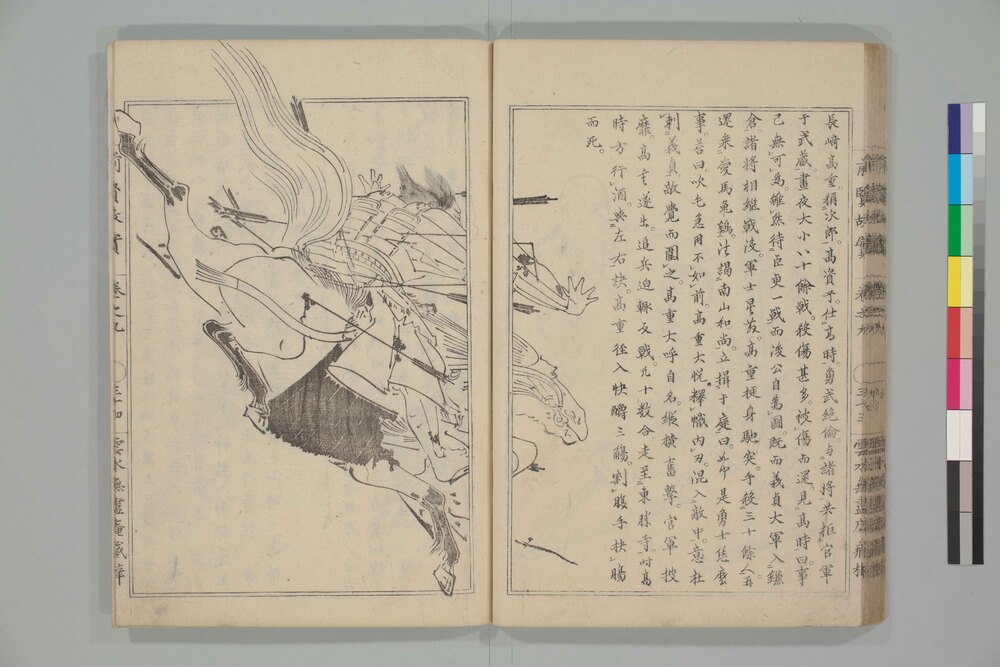 長崎高重。稱次郎。高資子。仕高時。勇武絶倫。与諸將共拒官軍
于武蔵。晝夜大小八十餘戰。殺傷甚多。被傷而還。見高時曰。事
已無可為。雖然待臣更一戰。而後公自為圖。既而義貞大軍入鎌
倉。諸將相継戰没。軍士星散。高重挺身馳突。手殺三十餘人。再
還乗愛馬兎鶏。先謁南山和尚。立揖于庭曰。如何是勇士恁麼
事。答曰。吹毛急用不如前。高重大悦。釋幟内刃。混入敵中。意在
刺義貞。敵覺而圍之。高重大呼自名。縦横奮撃。官軍披
靡。高重遂出。追兵迫輙反戰。凡十数合。走至東勝寺。時高
時方行酒。與左右訣。高重径入快釂三觴。割腹手抉腸
而死。
前賢故實
卷之九
三十四
雲水無盡庵藏梓